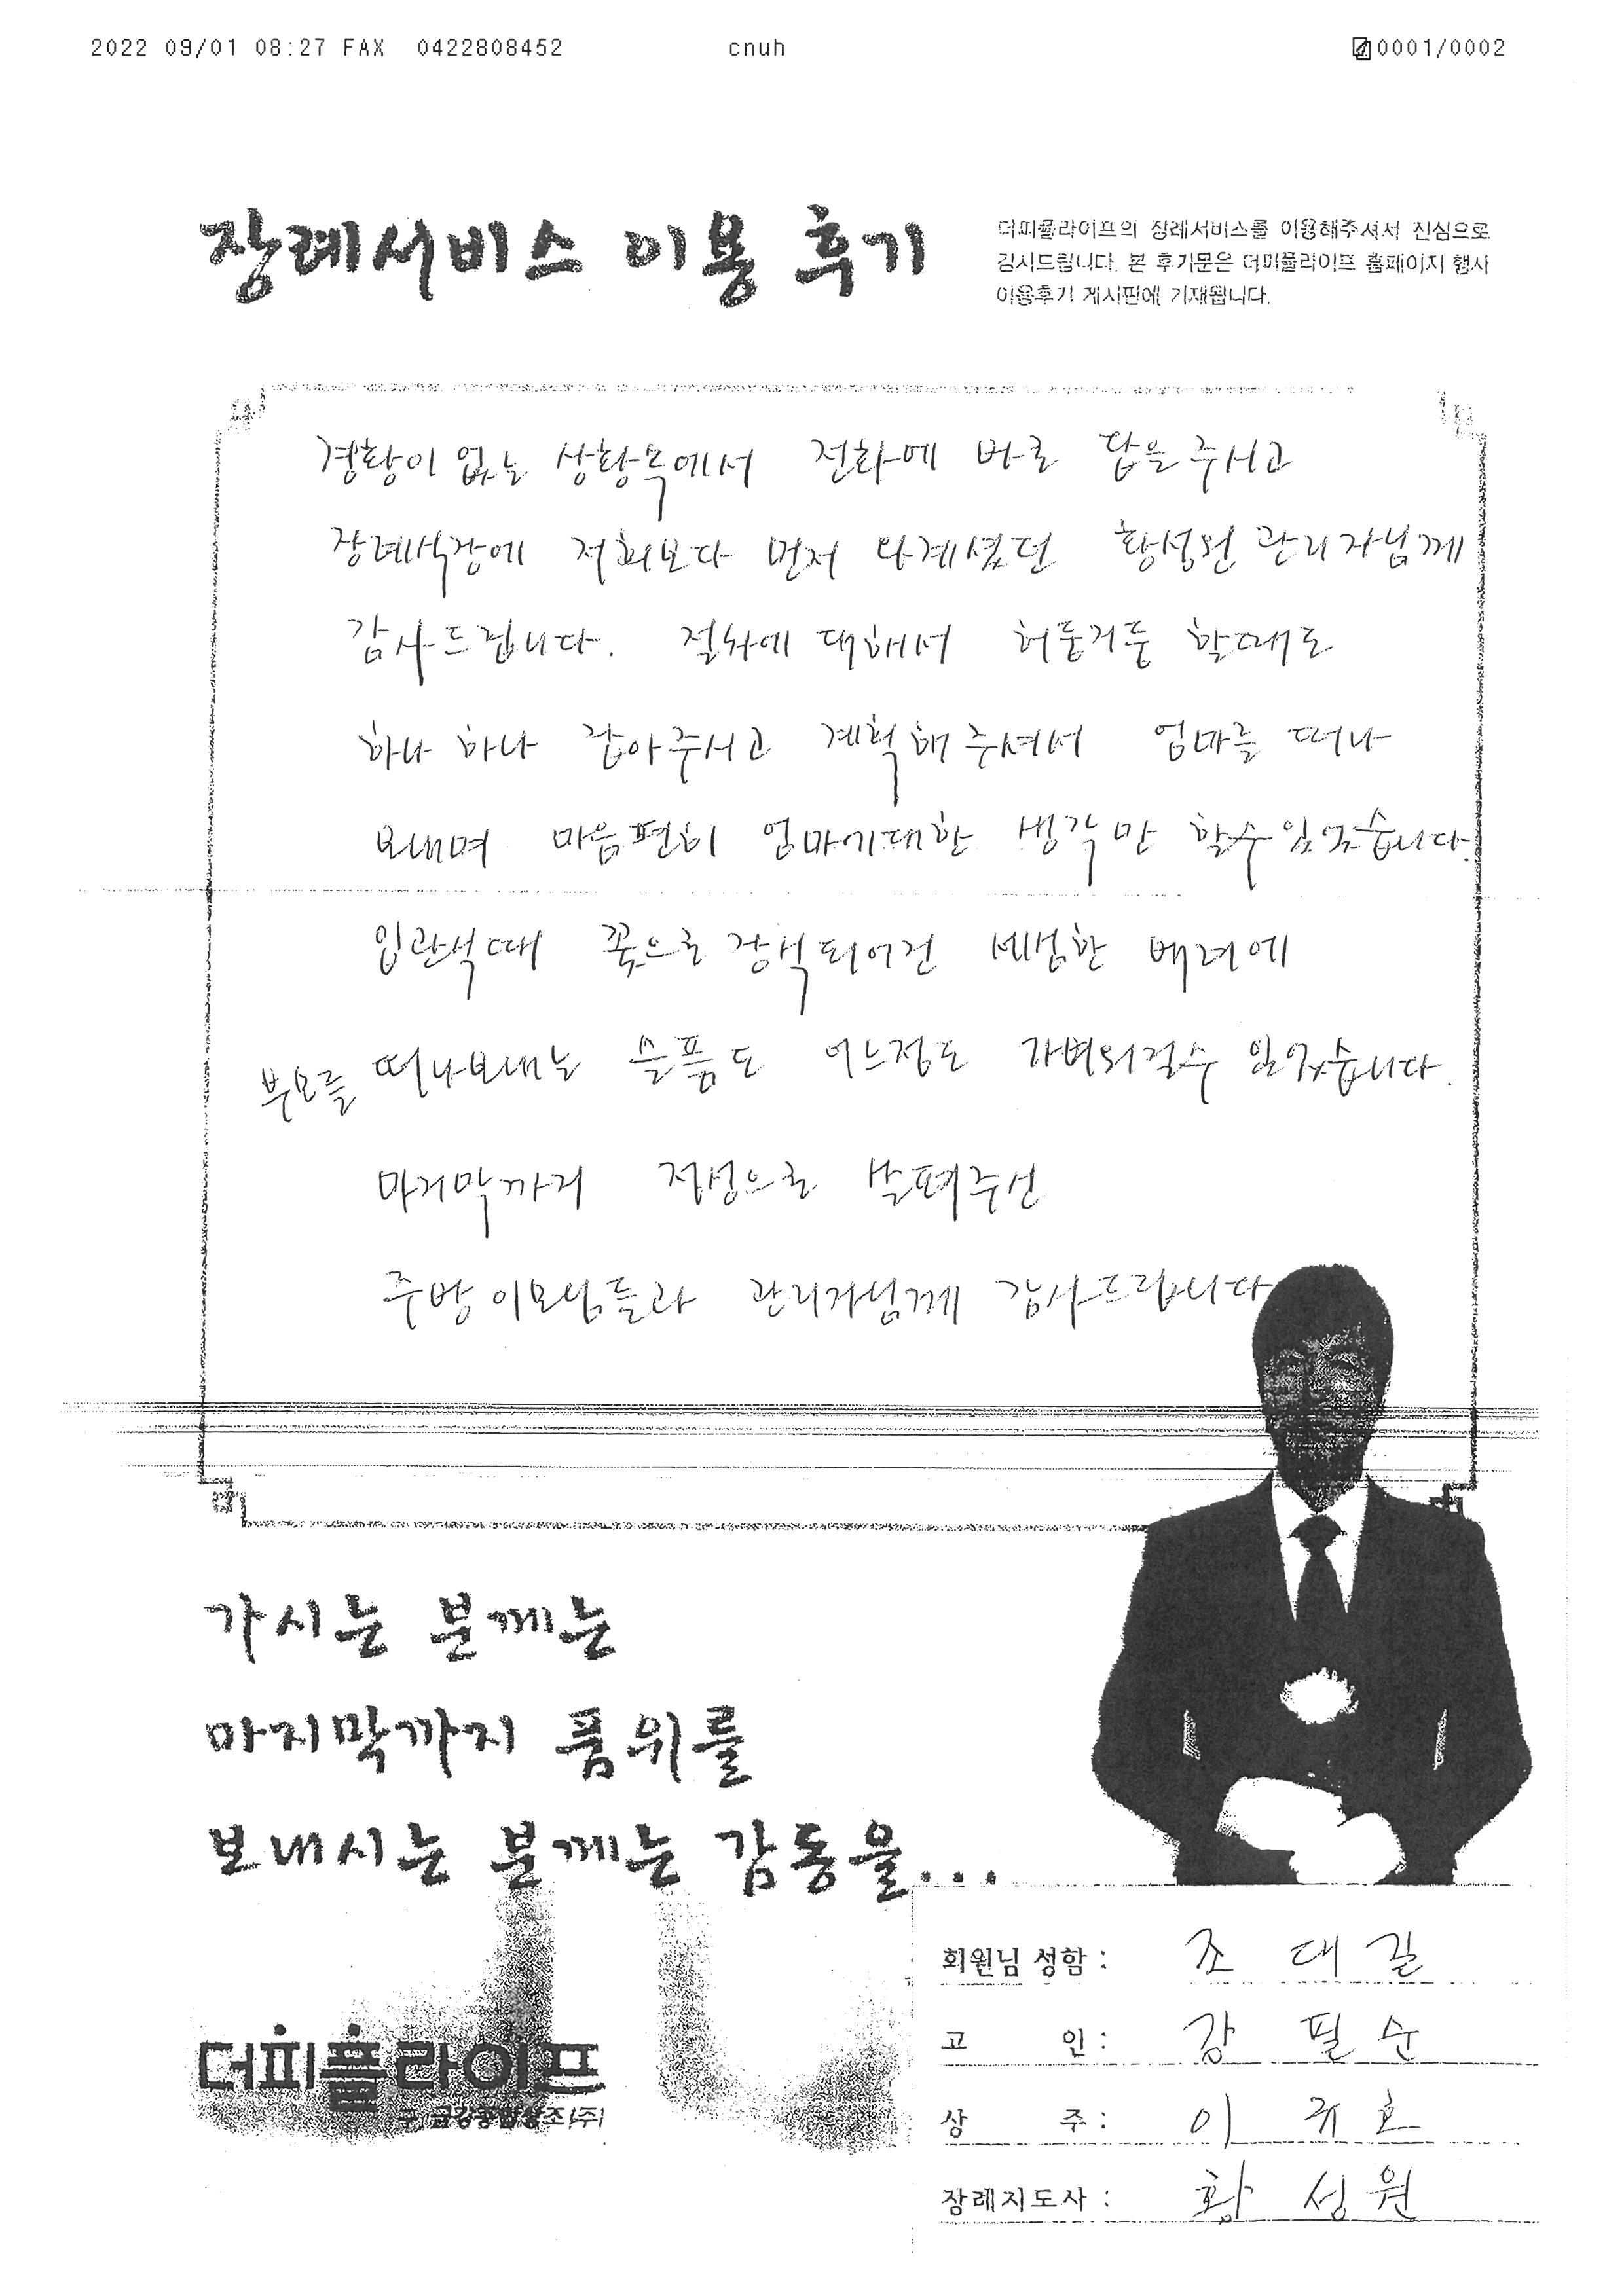 2022 09/01 08:27 FAX 0422808452 cnuh 0001/0002
장례서비스 이용 후기
더피플라이프의 장례서비스를 이용해주셔서 진심으로
감사드립니다. 본 후기문은 더피플라이프 홈페이지 행사
이용후기 게시판에 기재됩니다.
경황이 없는 상황속에서 전화에 바로 답을 주시고
장례식장에 저희보다 먼저 와계셨던 황성원 관리자님께
감사드립니다. 절차에 대해서 허둥거릴 할때도
하나 하나 잡아주시고 계획해 주셔서 엄마를 떠나
보내며 마음편히 엄마에대한 생각만 할수 있었습니다.
입관식때 꽃으로 장식되어진 세심한 배려에
부모를 떠나보내는 슬픔도 어느정도 가벼워질수 있었습니다.
마지막까지 정성으로 살펴주신
주방 이모님들과 관리자님께 감사드립니다
가시는 분께는
마지막까지 품위를
보내시는 분께는 감동을...
회원님 성함 : 조 대 길
고 인 : 강 필 순
상 주 : 이 규 호
장례지도사 : 황 성 원
더피플라이프
구, 금강종합상조(주)